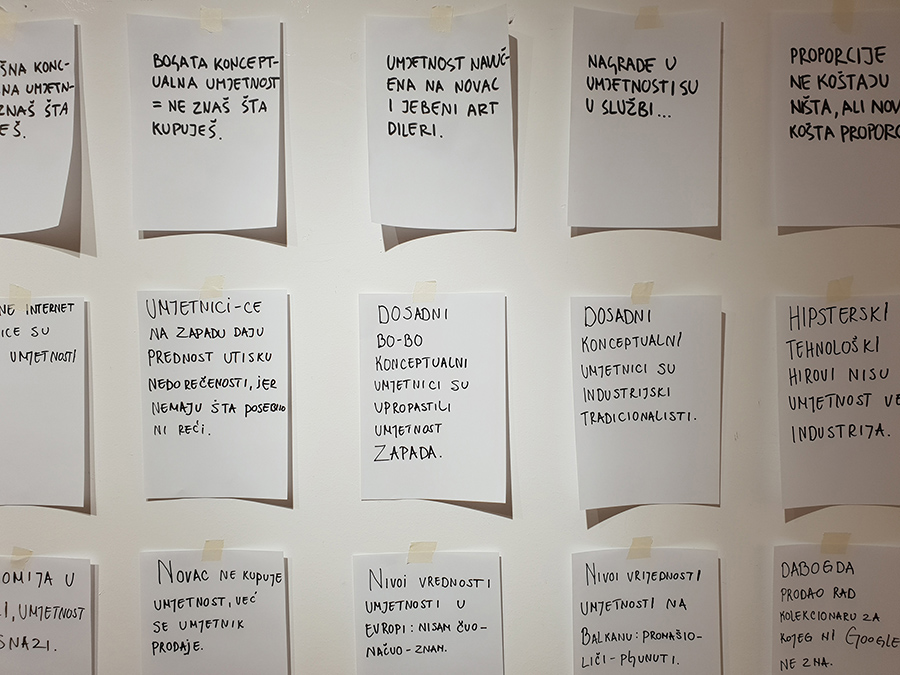 ŠNA KONC-
NA UMJETN-
ZNAŠ ŠTA
EŠ.
BOGATA KONCEPT-
UALNA UMJETNOST
= NE ZNAŠ ŠTA
KUPUJEŠ.
UMJETNOST NAVUČ-
ENA NA NOVAC
I JEBENI ART
DILERI.
NAGRADE U
UMJETNOSTI SU
U SLUŽBI...
PROPORCIJE
NE KOŠTAJU
NIŠTA, ALI NOV
KOŠTA PROPORC
NE INTERNET
ICE SU
UMJETNOSTI
UMJETNICI-CE
NA ZAPADU DAJU
PREDNOST UTISKU
NEDOREČENOSTI, JER
NEMAJU ŠTA POSEBNO
NI REĆI.
DOSADNI
BO-BO
KONCEPTUALNI
UMJETNICI SU
UPROPASTILI
UMJETNOST
ZAPADA.
DOSADNI
KONCEPTUALNI
UMJETNICI SU
INDUSTRIJSKI
TRADICIONALISTI.
HIPSTERSKI
TEHNOLOŠKI
HIROVI NISU
UMJETNOST VE
INDUSTRIJA.
OMIJA U
I, UMJETNOST
SNAZI.
NOVAC NE KUPUJE
UMJETNOST, VEĆ
SE UMJETNIK
PRODAJE.
NIVOI VREDNOSTI
UMJETNOSTI U
EVROPI: NISAM ČUO-
NAČUO-ZNAM.
NIVOI VRIJEDNOSTI
UMJETNOSTI NA
BALKANU: PRONAŠIO-
LIČI-PGUNUTI.
DABOGDA
PRODAO RAD
KOLEKCIONARU ZA
KOJEG NI GOOGLE
NE ZNA.